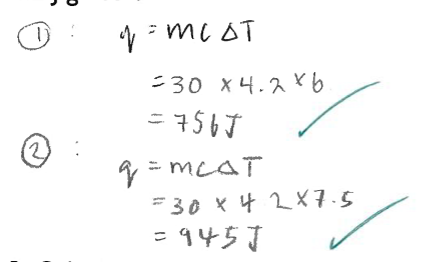 ① : q = mc ΔT
= 30 × 4.2 × 6
= 756J
② : q = mcΔT
= 30 × 4 2 × 7.5
= 945J